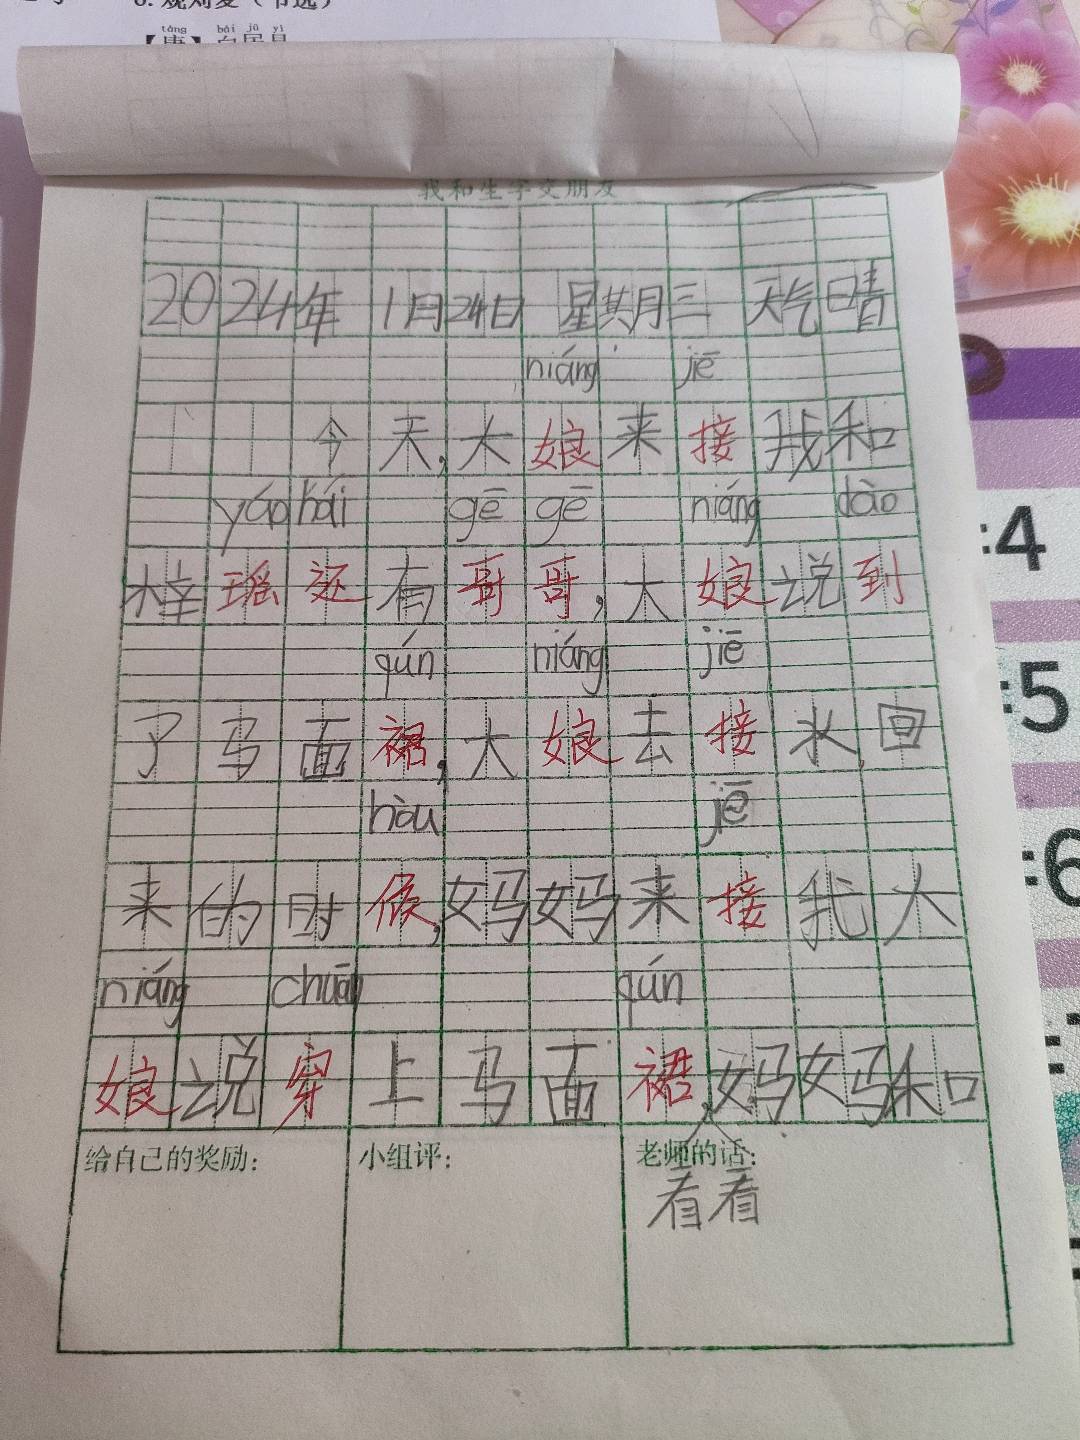 táng bái jū yì
【唐】白居易
我和生字交朋友
2024年 1月24日 星期三 天气晴
niáng jiē
今天,大娘来接我和
yáo hái gē gē niáng dào
梓瑶还有哥哥,大娘说到
qún niáng jiē
了马面裙,大娘去接水,回
hòu jiē
来的时候,妈妈来接我大
niáng chuān qún
娘说穿上马面裙,妈妈和
给自己的奖励:
小组评:
老师的话:
看看
=4
=5
=6